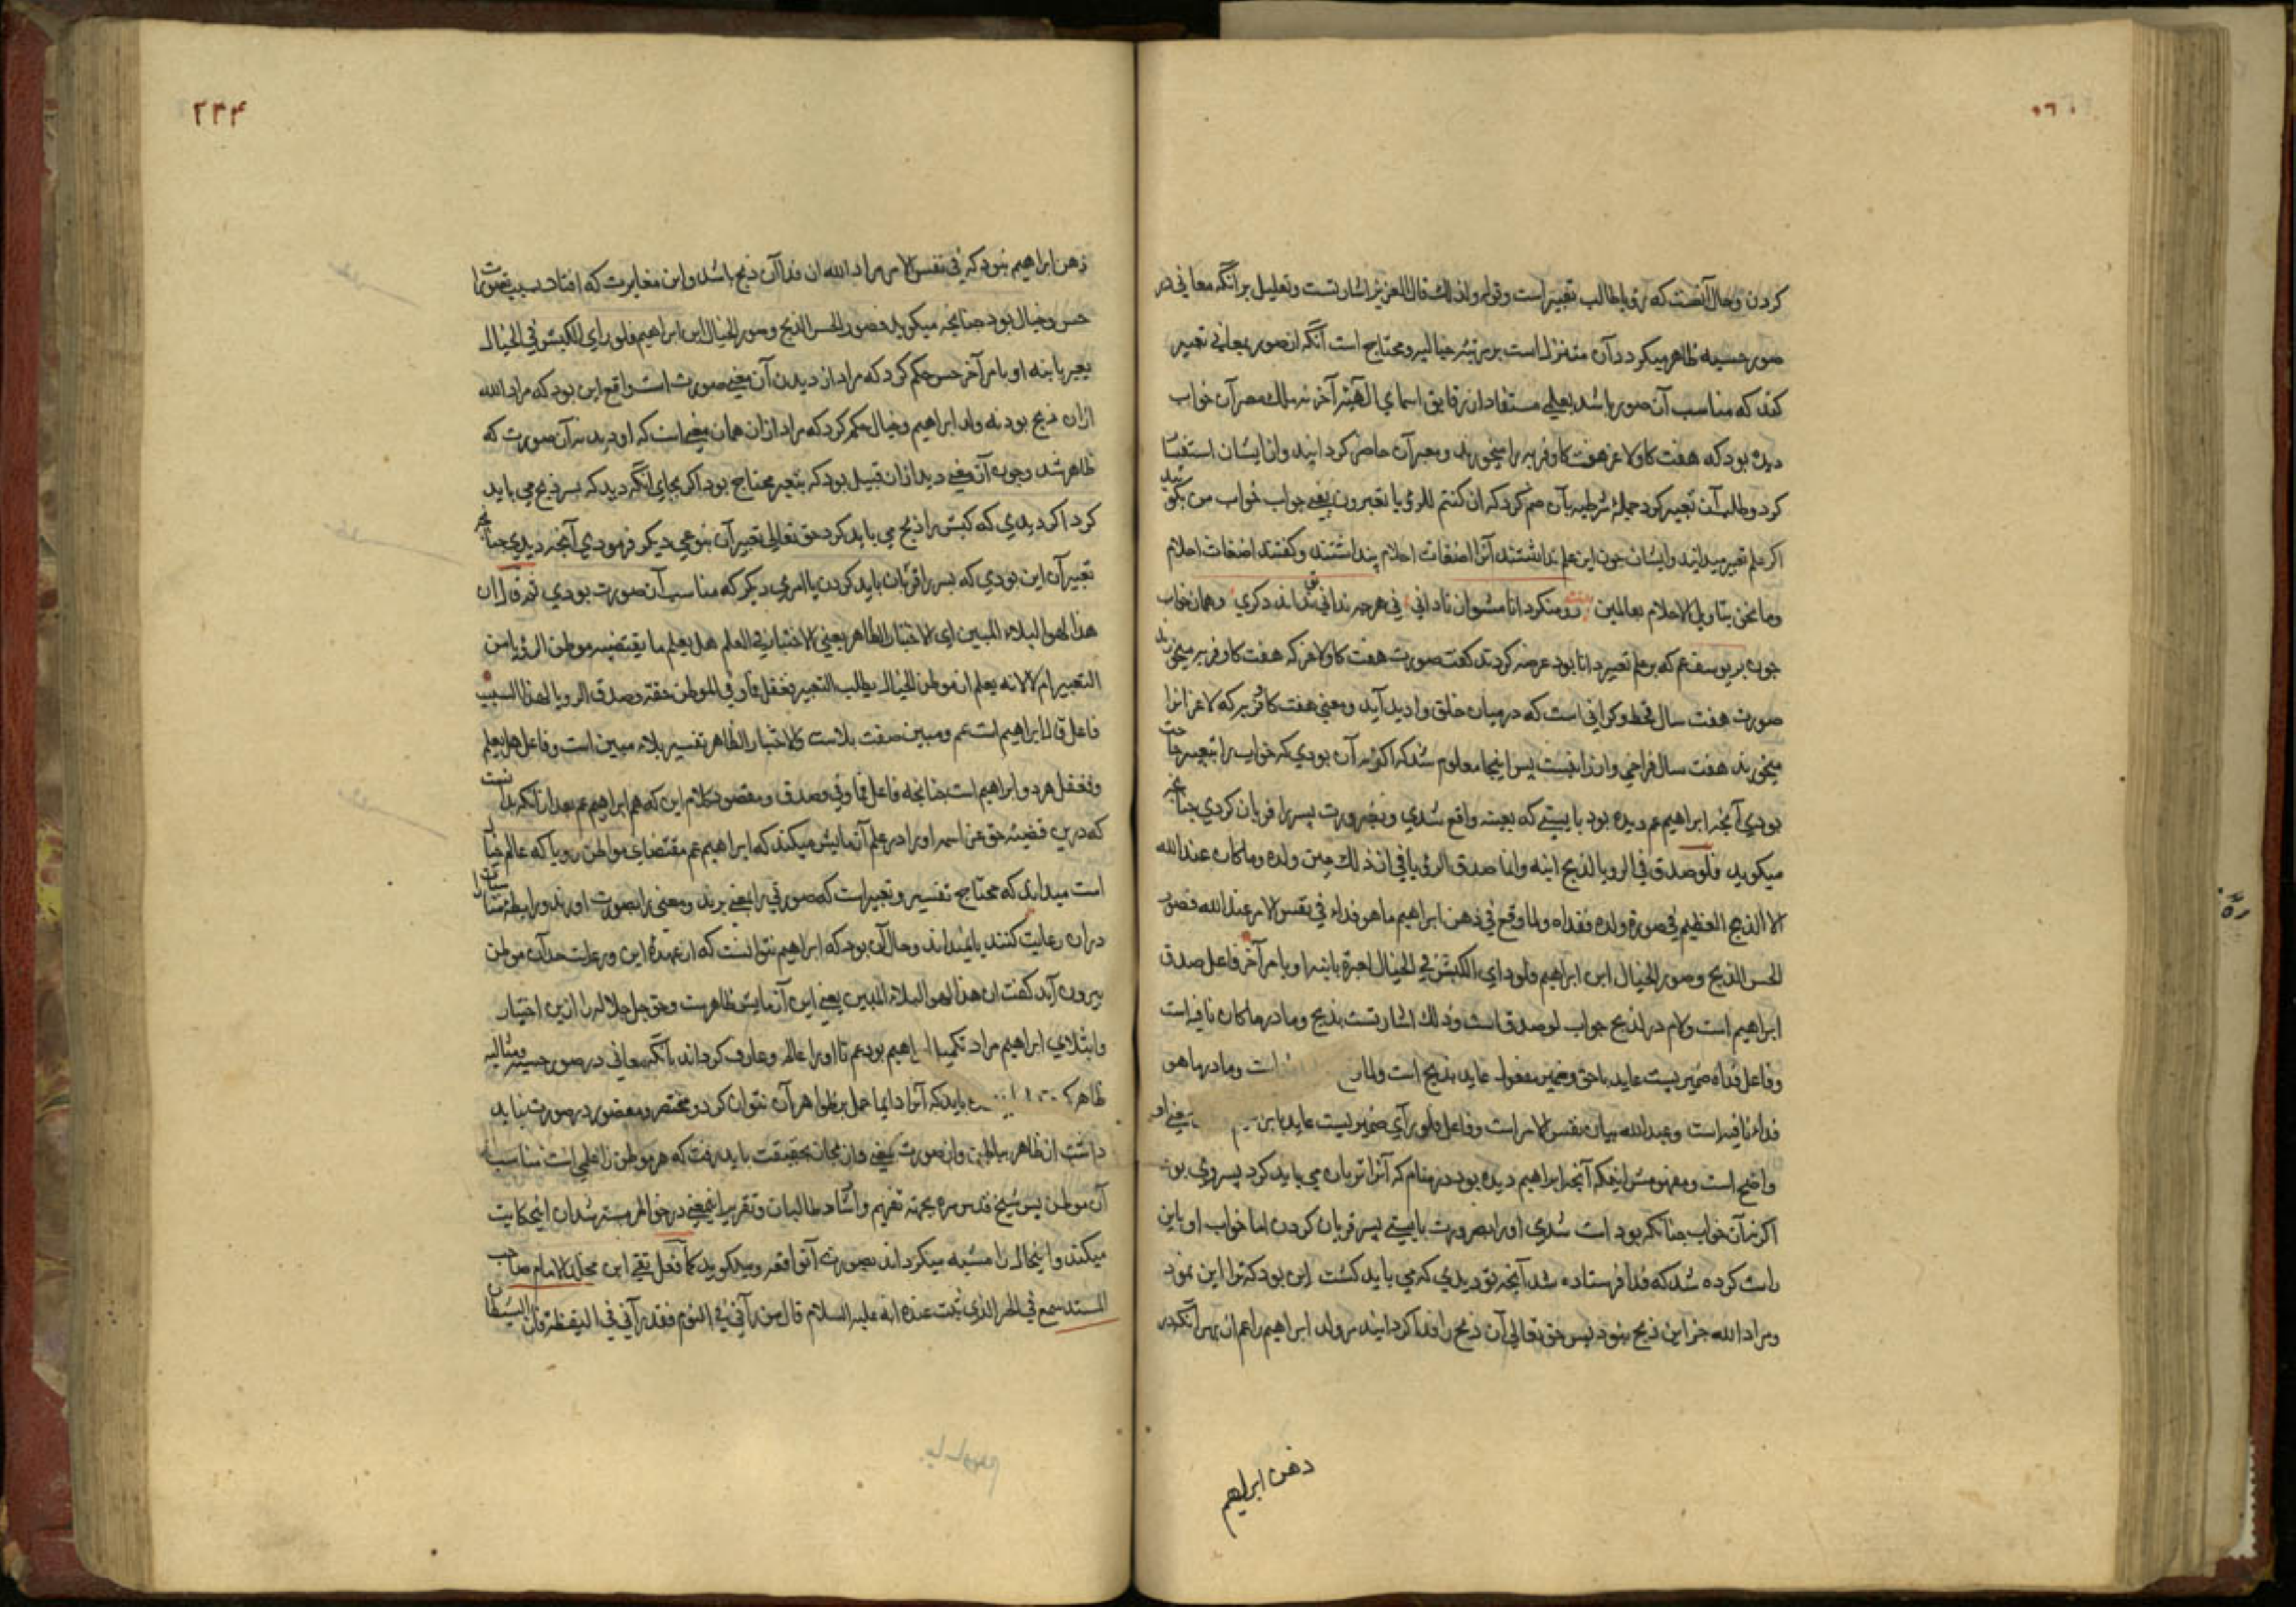 کردن وحال آنست که رؤیا طالب تعبیر است وقوله ولذلك قال العزیز اشارتست وتعلیل بر آنکه معانی در
صور حسیه ظاهر میکردد آن متنزل است بر مرتبه خیالیه ومحتاج است آنکه ان صور بمعانی تعبیر
کند که مناسب آن صور باشد یعلی مستفاد از رقایق اسمای الهیه آخر نه ملك مصر آن خواب
دیده بود که هفت کاو لاغر هفت کاو فربه را میخورند ومعبران حاضر کردانید واز ایشان استفتا
کرد وطلب آن تعبیر کرد جملۀ شرطیه بآن ضم کرد که ان کنتم للرؤیا تعبرون یعنی جواب خواب من بکوئید
اکر علم تعبیر میدانید وایشان چون این علم نداشتند آنرا اضغاث احلام پنداشتند وکفتند اضغاث احلام
وما نحن بتاویل الاحلام بعالمین رو منکر دانا مشو از نادانی نی هرچه ندانی نتداند دکری وهمان خواب
چون بر یوسف عم که بر علم تعبیر دانا بود عرضه کردند کفت صورت هفت کاو لاغر که هفت کاو فربه میخورند
صورت هفت سال قحط وکرانی است که در میان خلق وادید آید ومعنی هفت کاو فربه که لاغرانرا
میخورند هفت سال فراخی وارزانیست پس اینجا معلوم شد که اکر نه آن بودی که خواب را تعبیر حاجت
بودی آنچه ابراهیم عم دیده بود بایستی که بعینه واقع شدی وبضرورت پسر را قربان کردی چنانچه
میکوید فلو صدق فی الرویا لذبح ابنه وانما صدق الرؤیا فی ان ذلك عین ولده وما کان عند الله
الا الذبح العظیم فی صورة ولده ففداه ولما وقع فی ذهن ابراهیم ما هو فداء فی نفس الامر عند الله فصور
الحس الذبح وصور الخیال ابن ابراهیم فلو رای الکبش فی الخیال لعبره بابنه او بامر آخر فاعل صدق
ابراهیم است ولام در لذبح جواب لو صدق است وذلك اشارتست بذبح وما در ما کان نافیه است
وفاعل فداه ضمیریست عاید با حق وضمیر مفعول عاید بذبح است ولما است وما در ما هو
فداء نافیه است وعند الله بیان نفس الامر است وفاعل فلو رآی ضمیریست عاید با ابن یعنی او
واضح است ومفهومش اینکه آنچه ابراهیم دیده بود در منام که آنرا قربان می باید کرد پسر وی بود
اکر نه آن خواب چنانکه بود است شدی او را بضرورت بایستی پسر قربان کردن اما خواب او باین
راست کرده شد که فدا فرستاده شد آنچه تو دیدی که می باید کشت این بود که ترا این نمود
ومراد الله جز این ذبح نبود پس حق تعالی آن ذبح را فدا کردانید بر ولد ابراهیم
ذهن ابراهیم
۲۳۴
ذهن ابراهیم نبود که فی نفس الامر مراد الله ان فدا آن ذبح باشد واین مغایرت که افتاد بسبب تصورات
حس وخیال بود چنانچه میکوید فصور الحس الذبح وصور الخیال ابن ابراهیم فلو رای الکبش فی الخیال
یعبر بابنه او بامر آخر حس حکم کرد که مراد از دیدن آن معنی صورت است واقع این بود که مراد الله
ازان ذبح بود نه ولد ابراهیم وخیال حکم کرد که مراد ازان همان معنی است که او دید نه آن صورت که
ظاهر شد وچون آن معنی دید ازان قبیل بود که بتعبیر محتاج بود اکر بجای آنکه دید که پسر ذبح می باید
کرد اکر دیدی که کبش را ذبح می باید کرد حق تعالی تعبیر آن بنوعی دیکر فرمودی آنچه دیدی چنانچه
تعبیر آن این بودی که پسر را قربان باید کردن یا امری دیکر که مناسب آن صورت بودی ثم قال ان
هذا لهو البلاء المبین ای الاختبار الظاهر یعنی الاختبار فی العلم هل یعلم ما یقتضیه موطن الرؤیا من
التعبیر ام لا لانه یعلم ان موطن الخیال یطلب التعبیر فغفل فما وفی الموطن حقه وصدق الرویا لهذا السبب
فاعل قال ابراهیم است عم ومبین صفت بلاست والاختبار الظاهر تفسیر بلاء مبین است وفاعل هل یعلم
وفغفل هر دو ابراهیم است چنانچه فاعل فما وفی وصدق ومقصود کلام این که هم ابراهیم عم بعد ازانکه بدانست
که درین قضیه حق عز اسمه او را در علم آزمایش میکند که ابراهیم عم مقتضای موطن رویا که عالم خیال
است میداند که محتاج تفسیر وتعبیر است که صورتی را بمعنی برند ومعنی را بصورت اورند
دران رعایت کنند یا نمیداند وحال آن بود که ابراهیم نتوانست که از عهدۀ این ورعایت حد آن موطن
بیرون آید کفت ان هذا لهو البلاء المبین یعنی این آزمایش ظاهرست وحق جل جلاله را ازین اختیار
وابتلای ابراهیم مراد تکمیل ابراهیم بود عم تا او را عالم وعارف کرداند بآنکه معانی در صور حسیه ومثالیه
ظاهر باید که آنرا دایما حمل بر ظواهر آن نتوان کرد ومختصر ومقصور در صورت نباید
داشت از ظاهر بباطن واز صورت بمعنی واز مجاز بحقیقت باید رفت که هر موطن را علمی است مناسب
آن موطن پس شیخ قدس سره بجهة تفهیم وارشاد طالبان وتقریر این معنی در خواطر مسترشدان این حکایت
میکند واینحال را مشبه میکرداند بصورت آن واقعه ومیکوید کما فعل تقی ابن مخلد الامام صاحب
المسند سمع فی الخبر الذی ثبت عنده انه علیه السلام قال من رآنی فی النوم فقد رآنی فی الیقظة فان الشیطان